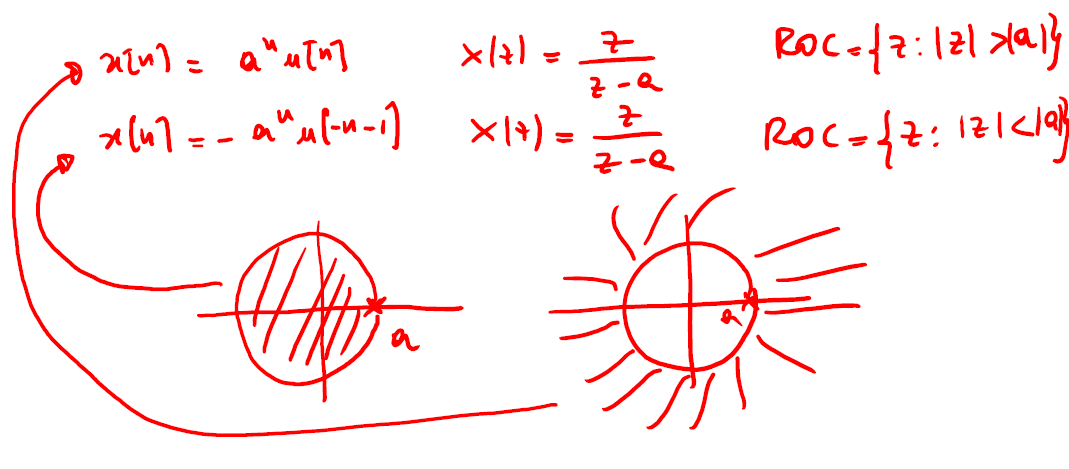 x[n] = aⁿ u[n] X(z) = z/(z-a) ROC = {z : |z| > |a|}
x[n] = - aⁿ u[-n-1] X(z) = z/(z-a) ROC = {z : |z| < |a|}
a a